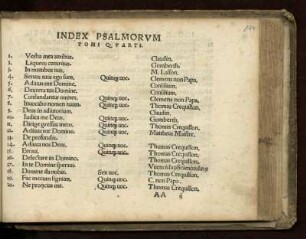 INDEX PSALMORVM
TOMI QVARTI.
1. Verba mea auribus. Claudin.
2. Laqueus
3. In
4. Servus tuus ego sum. Quinq; voc. Clemens non Papa.
5. Adiuva me Domine. Consilium.
6. Domine. Consilium.
7. Confundantur omnes. Quinq; voc. Clemens non Papa.
8. Invocabo nomen tuum. Quinq; voc. Thomas Crequillon.
9. Deus in adiutorium. Claudin.
10. Iudica me Deus. Quinq; voc. Gomberth.
11. Dirige gressus meos. Quinq; voc. Thomas Crequillon.
12. Adiuva me Domine. Quinq; voc. Matthias
13. De profundis.
14. Adiuva nos Deus. Quinq; voc. Thomas Crequillon.
15. Quinq; voc. Thomas Crequillon.
16. Delectare in Domino. Quinq; voc. Thomas Crequillon.
17. In te Domine speravi.
18. Domine Sex voc. Thomas Crequillon.
19. Fac mecum signum. Quinq; voc. C. non Papa.
20. Ne proijcias me. Quinq; voc. Thomas Crequillon.
AA